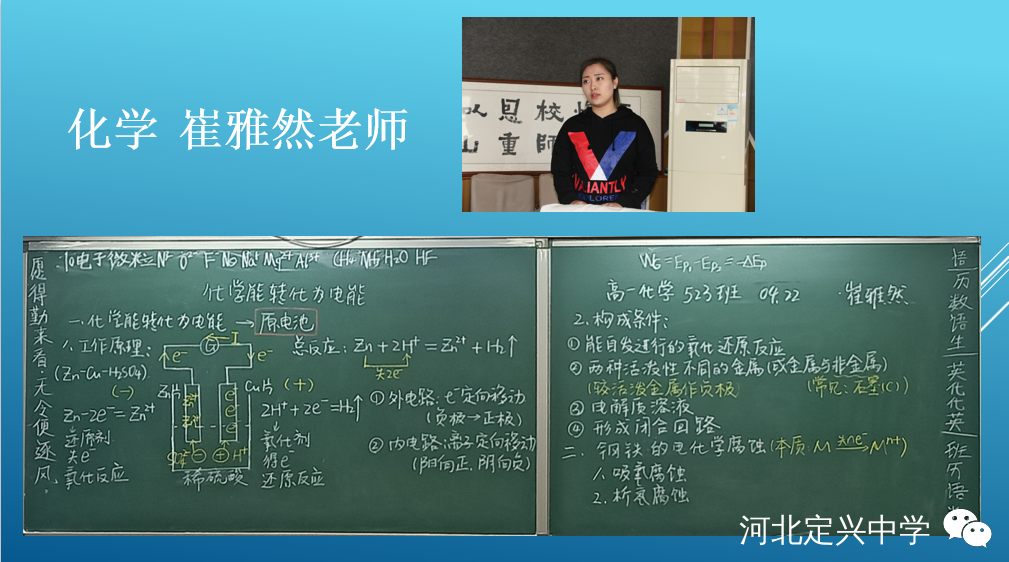 化学 崔雅然老师
以 恩 校
山 重 師
VALIANTLY
EXPLORER
10电子微粒 N³⁻ O²⁻ F⁻ Ne Na⁺ Mg²⁺ Al³⁺ CH₄ NH₃ H₂O HF
愿得勤来看,无令便逐风。
化学能转化为电能
一.化学能转化为电能 → 原电池
1.工作原理:
(Zn-Cu-H₂SO₄)
(−)
Zn片
Zn-2e⁻=Zn²⁺
还原剂
失e⁻
氧化反应
e⁻
G
I
e⁻
SO₄²⁻
H⁺
稀硫酸
Cu片 (+)
2H⁺+2e⁻=H₂↑
氧化剂
得e⁻
还原反应
总反应: Zn+2H⁺=Zn²⁺+H₂↑
失2e⁻
①外电路:e⁻定向移动
(负极→正极)
②内电路:离子定向移动
(阳向正,阴向负)
高一化学 523班 04.22 崔雅然
2.构成条件:
①能自发进行的氧化还原反应
②两种活泼性不同的金属(或金属与非金属)
(较活泼金属作负极) (常见:石墨(C))
③电解质溶液
④形成闭合回路
二.钢铁的电化学腐蚀(本质:M 失ne⁻→ Mⁿ⁺)
1.吸氧腐蚀
2.析氢腐蚀
语历数语生英化化英班历语
河北定兴中学